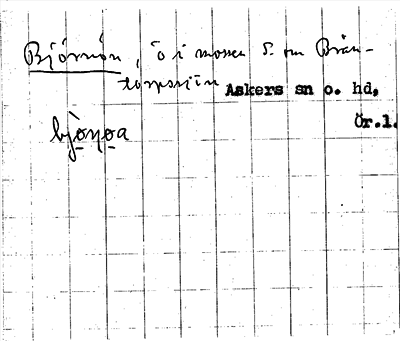 Björnön, ö i mossen S. om Brän-
torpasjön Askers sn o. hd,
Ör.l.
bjö̱ṇo̱a